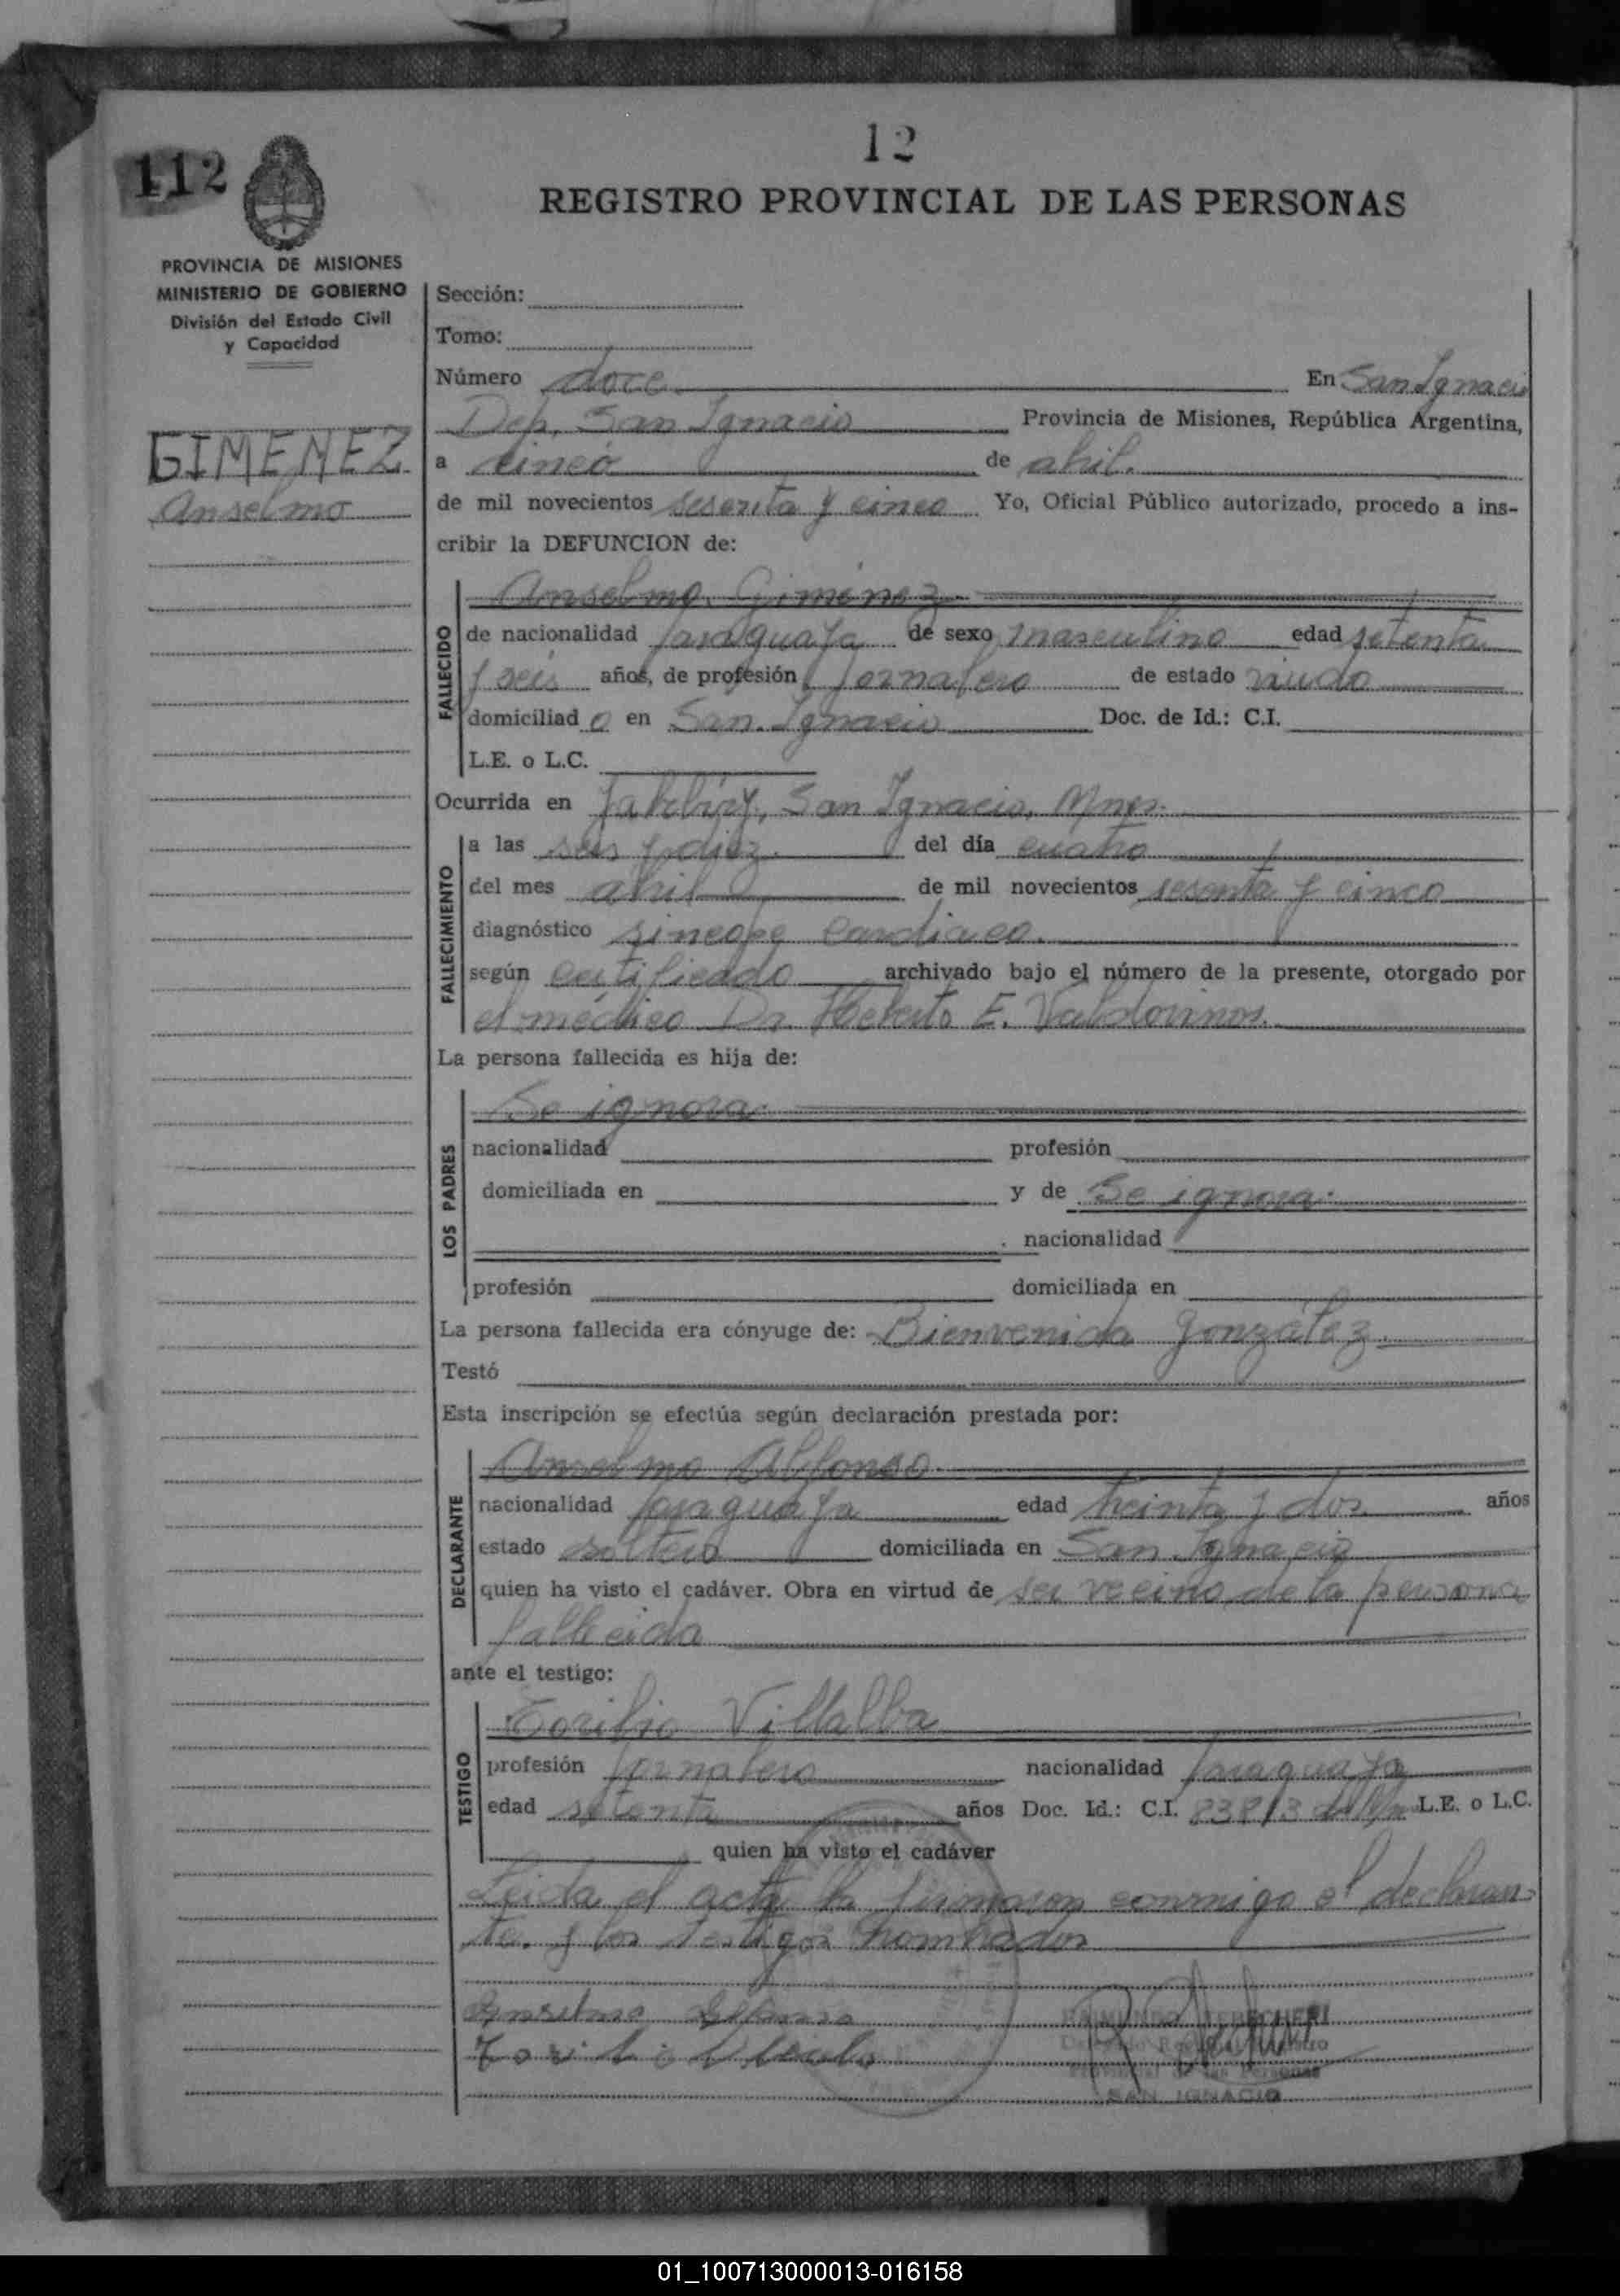 12
112
REGISTRO PROVINCIAL DE LAS PERSONAS
PROVINCIA DE MISIONES
MINISTERIO DE GOBIERNO
División del Estado Civil
y Capacidad
GIMENEZ
Anselmo
Sección:
Tomo:
Número doce En San Ignacio
Dep. San Ignacio Provincia de Misiones, República Argentina,
a cinco de abril.
de mil novecientos sesenta y cinco Yo, Oficial Público autorizado, procedo a ins-
cribir la DEFUNCION de:
FALLECIDO
Anselmo Gimenez
de nacionalidad paraguaya de sexo masculino edad setenta
y seis años, de profesión jornalero de estado viudo
domiciliad o en San Ignacio Doc. de Id.: C.I.
L.E. o L.C.
Ocurrida en Jabebiry, San Ignacio, Mnes.
FALLECIMIENTO
a las seis y diez del día cuatro
del mes abril de mil novecientos sesenta y cinco
diagnóstico sincope cardiaco.
según certificado archivado bajo el número de la presente, otorgado por
el médico Dr. Heberto E. Valdovinos.
La persona fallecida es hija de:
LOS PADRES
Se ignora.
nacionalidad profesión
domiciliada en y de Se ignora.
nacionalidad
profesión domiciliada en
La persona fallecida era cónyuge de: Bienvenida González.
Testó
Esta inscripción se efectúa según declaración prestada por:
DECLARANTE
Anselmo Alfonso.
nacionalidad paraguaya edad treinta y dos años
estado soltero domiciliada en San Ignacio
quien ha visto el cadáver. Obra en virtud de ser vecino de la persona
fallecida
ante el testigo:
TESTIGO
Toribio Villalba
profesión jornalero nacionalidad paraguaya
edad setenta años Doc. Id.: C.I. L.E. o L.C.
quien ha visto el cadáver
Leida el acta la firmaron conmigo el declaran-
te. y los testigos nombrados
Anselmo Alfonso
SAN IGNACIO
01_100713000013-016158